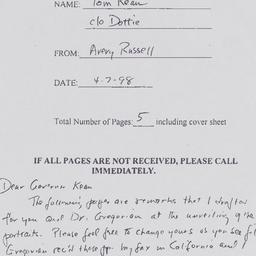 NAME: Tom Kean
c/o Dottie
FROM: Avery Russell
DATE: 4-7-98
Total Number of Pages: 5 including cover sheet
IF ALL PAGES ARE NOT RECEIVED, PLEASE CALL
IMMEDIATELY.
Dear Governor Kean
The following pages are remarks that I drafted
for you and Dr. Gregorian at the unveiling of the
portraits. Please feel free to change yours as you see fit
Gregorian rec'd these by fax in California and I